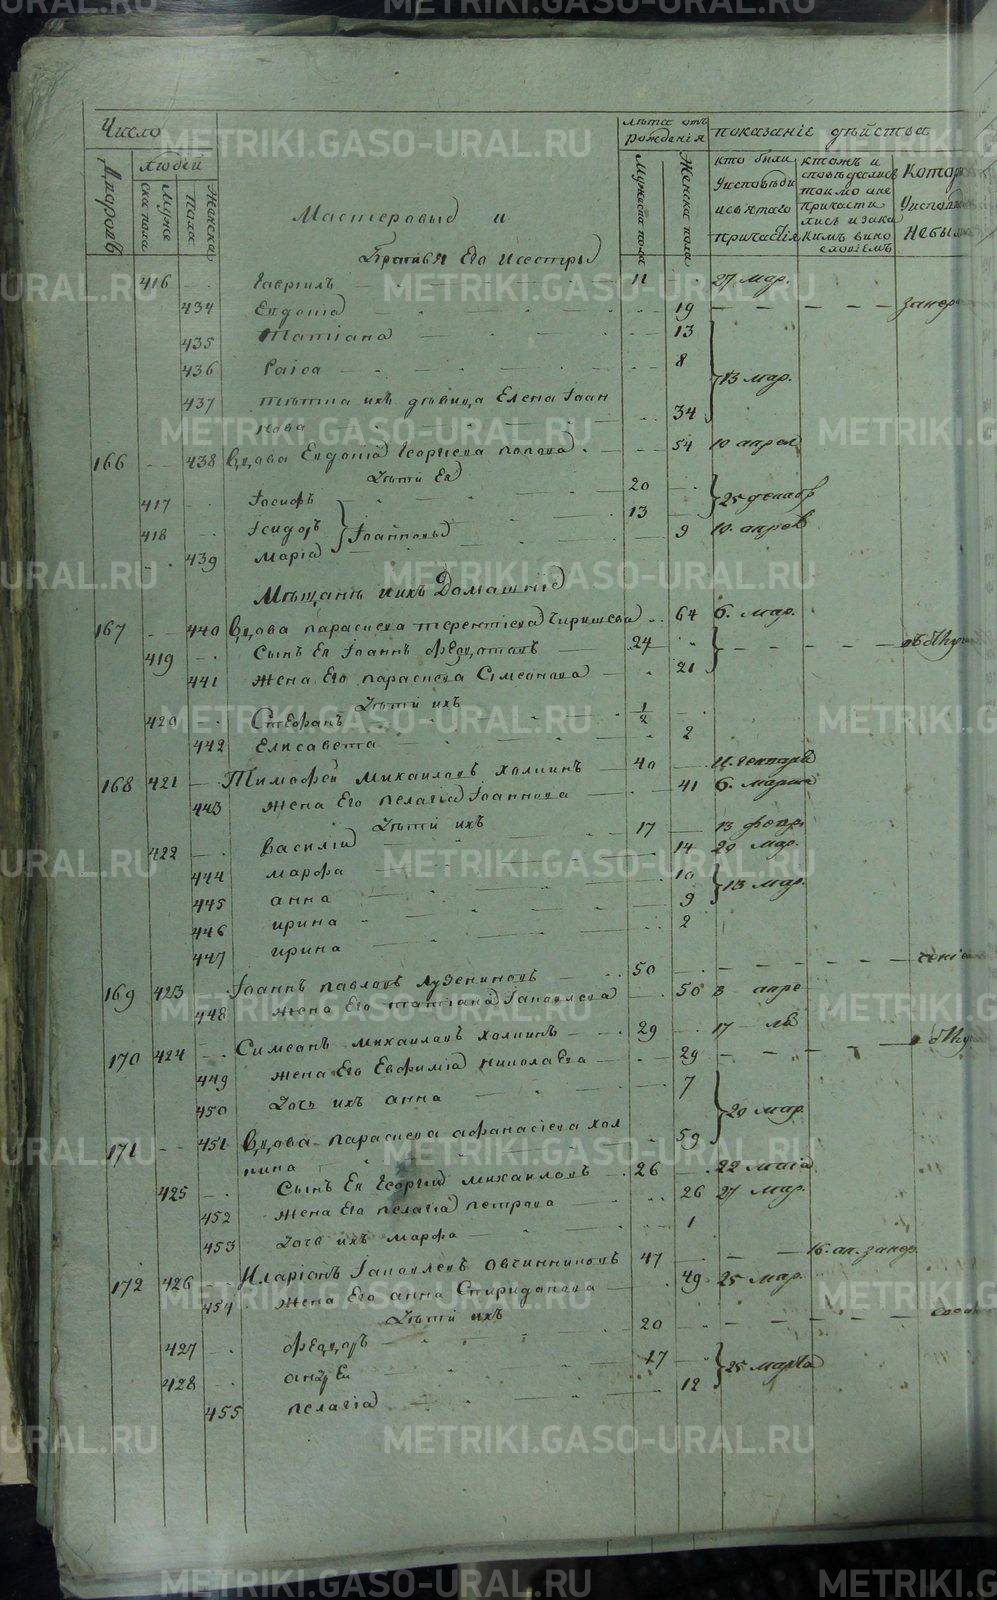 Число
лѣта отъ рожденія
показаніе дѣйства
Дворовъ
людей
Муже ска пола
Женска Пола
Мастеровыя и
Мужеска пола
Женска пола
кто были Уисповѣди исвятаго причастія
ктожъ и сповѣдался токмо ане причасти лись изака кимъ вино словіемъ
Котор Уисповѣд Небы
Братья Его Исестры
416 Гавріилъ 11 27 мар.
434 Евдокія 19
435 Татіана 13
436 Раіса 8 13 мар.
437 тѣтка ихъ дѣвица Елена Іоан
нова 34
166 438 Вдова Евдокія Георгіева попова 54 10 апрел
Дѣти Ея
417 Іосифъ 20 25 декабр
418 Ісидоръ Іоанновы 13
439 Марія 9 10 апрел
Мѣщанъ иихъ Домашнія
167 440 Вдова параскева терентіева 64 6. мар.
419 Сынъ Ея Іоаннъ Федотовъ 24
441 жена Его параскева Сімеонова 21
Дѣти ихъ
420 Стефанъ 1/2
442 Елисавета 2
168 421 Тимофей михаиловъ холкинъ 40
443 жена Его пелагія Іоаннова 41 6. марта
Дѣти ихъ
422 Василій 17 13 февр
444 марфа 14 20 мар.
445 анна 10 13 мар.
446 ирина 9
447 ирина 2
169 423 Іоаннъ павловъ 50
448 жена Его татіана Іаковлева 50 8 апре
170 424 Симеонъ михаиловъ холкинъ 29 17
449 жена Его Евфимія николаева 29
450 Дочь ихъ анна 7 20 мар.
171 451 Вдова параскева афанасіева хол
кина 59
425 Сынъ Ея Георгій михаиловъ 26 22 маія
452 жена Его пелагія петрова 26 27 мар.
453 Дочь ихъ марфа 1
172 426 Иларіонъ Іаковлевъ овчинниковъ 47 16. ап.
454 жена Его анна Спиридонова 49 25 мар.
Дѣти ихъ
427 Феодоръ 20
428 андрей 17 25 марта
455 пелагія 12
METRIKI.GASO-URAL.RU